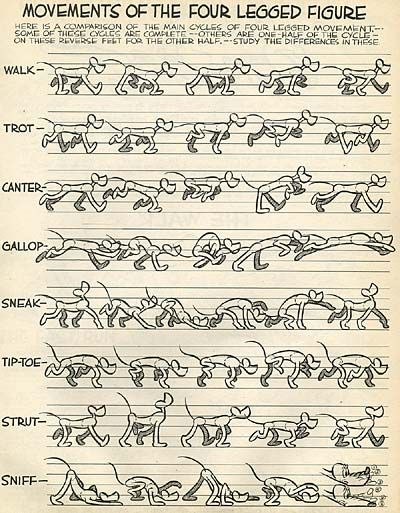 MOVEMENTS OF THE FOUR LEGGED FIGURE
HERE IS A COMPARISON OF THE MAIN CYCLES OF FOUR LEGGED MOVEMENT.--
SOME OF THESE CYCLES ARE COMPLETE--OTHERS ARE ONE-HALF OF THE CYCLE--
ON THESE REVERSE FEET FOR THE OTHER HALF.--STUDY THE DIFFERENCES IN THESE
WALK-
TROT-
CANTER-
GALLOP-
SNEAK-
TIP-TOE-
STRUT-
SNIFF-